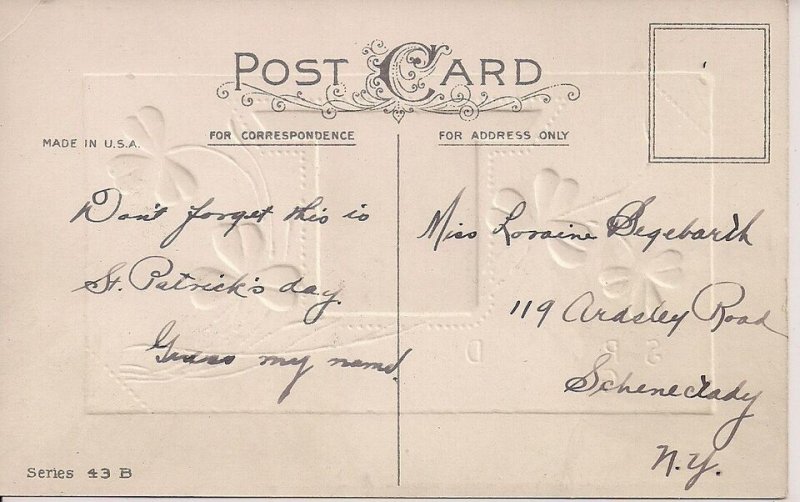 POST CARD
MADE IN U.S.A.
FOR CORRESPONDENCE
FOR ADDRESS ONLY
Don't forget this is
St. Patrick's day
Guess my name!
Miss Loraine Segebarth
119 Ardsley Road
Schenectady
N.Y.
Series 43 B